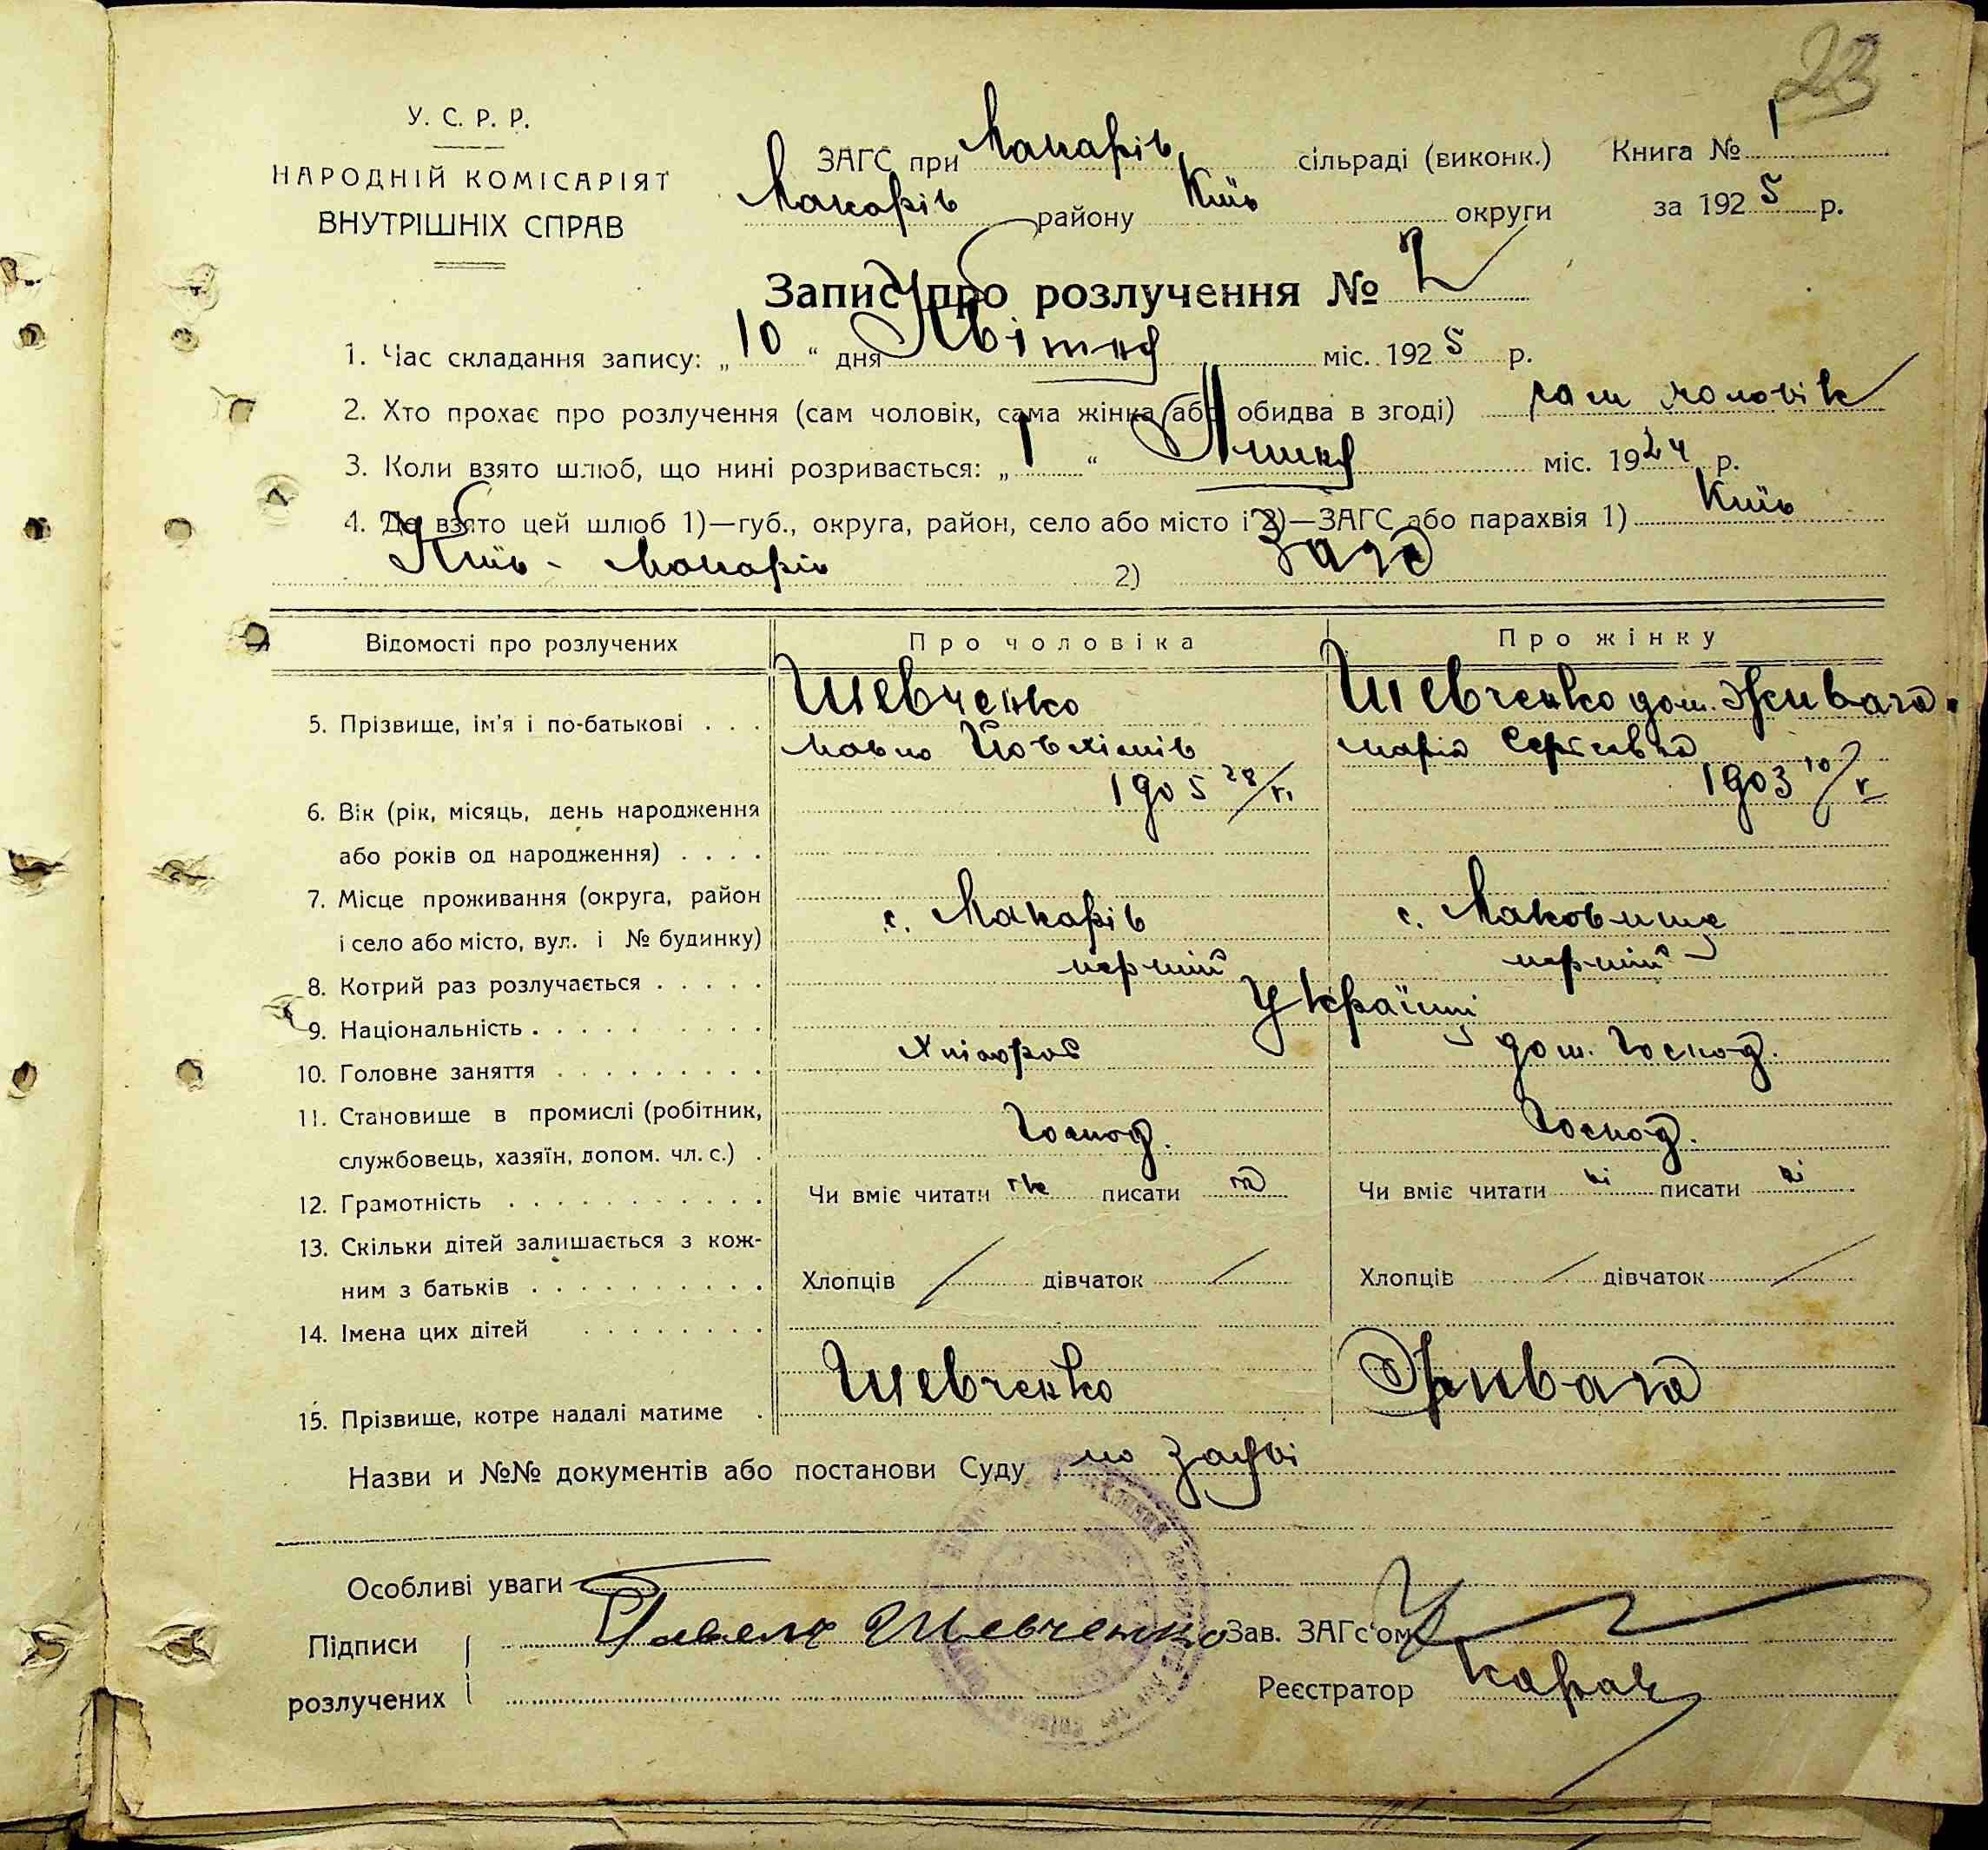 23
У. С. Р. Р.
НАРОДНІЙ КОМІСАРІЯТ
ВНУТРІШНІХ СПРАВ
ЗАГС при Макарів сільраді (виконк.) Книга № 1
Макарів району Київ округи за 1925 р.
Запис про розлучення № 2
1. Час складання запису: „10“ дня Квітня міс. 1925 р.
2. Хто прохає про розлучення (сам чоловік, сама жінка або обидва в згоді) сам чоловік
3. Коли взято шлюб, що нині розривається: „1“ міс. 1924 р.
4. Де взято цей шлюб 1)—губ., округа, район, село або місто і 2)—ЗАГС або парахвія 1) Київ
Київ - Макарів 2) Загс
Відомості про розлучених Про чоловіка Про жінку
5. Прізвище, ім'я і по-батькові . . . Шевченко Шевченко дош. Живага
Марія Сергієвна
6. Вік (рік, місяць, день народження 1905 28/ 1903 10/
або років од народження) . . . .
7. Місце проживання (округа, район
і село або місто, вул. і № будинку) с. Макарів с. Маковище
8. Котрий раз розлучається . . . . . перший перший
9. Національність . . . . . . . . . Українці
10. Головне заняття . . . . . . . . . Хлібороб дом. господ.
11. Становище в промислі (робітник,
службовець, хазяїн, допом. чл. с.) . Господ. Господ.
12. Грамотність . . . . . . . . . . . Чи вміє читати так писати та Чи вміє читати ні писати ні
13. Скільки дітей залишається з кож-
ним з батьків . . . . . . . . . . Хлопців / дівчаток / Хлопців / дівчаток /
14. Імена цих дітей . . . . . . . .
15. Прізвище, котре надалі матиме . Шевченко Живага
Назви и №№ документів або постанови Суду по заяві
Особливі уваги
Підписи Павелъ Шевченко Зав. ЗАГс'ом
розлучених Реєстратор